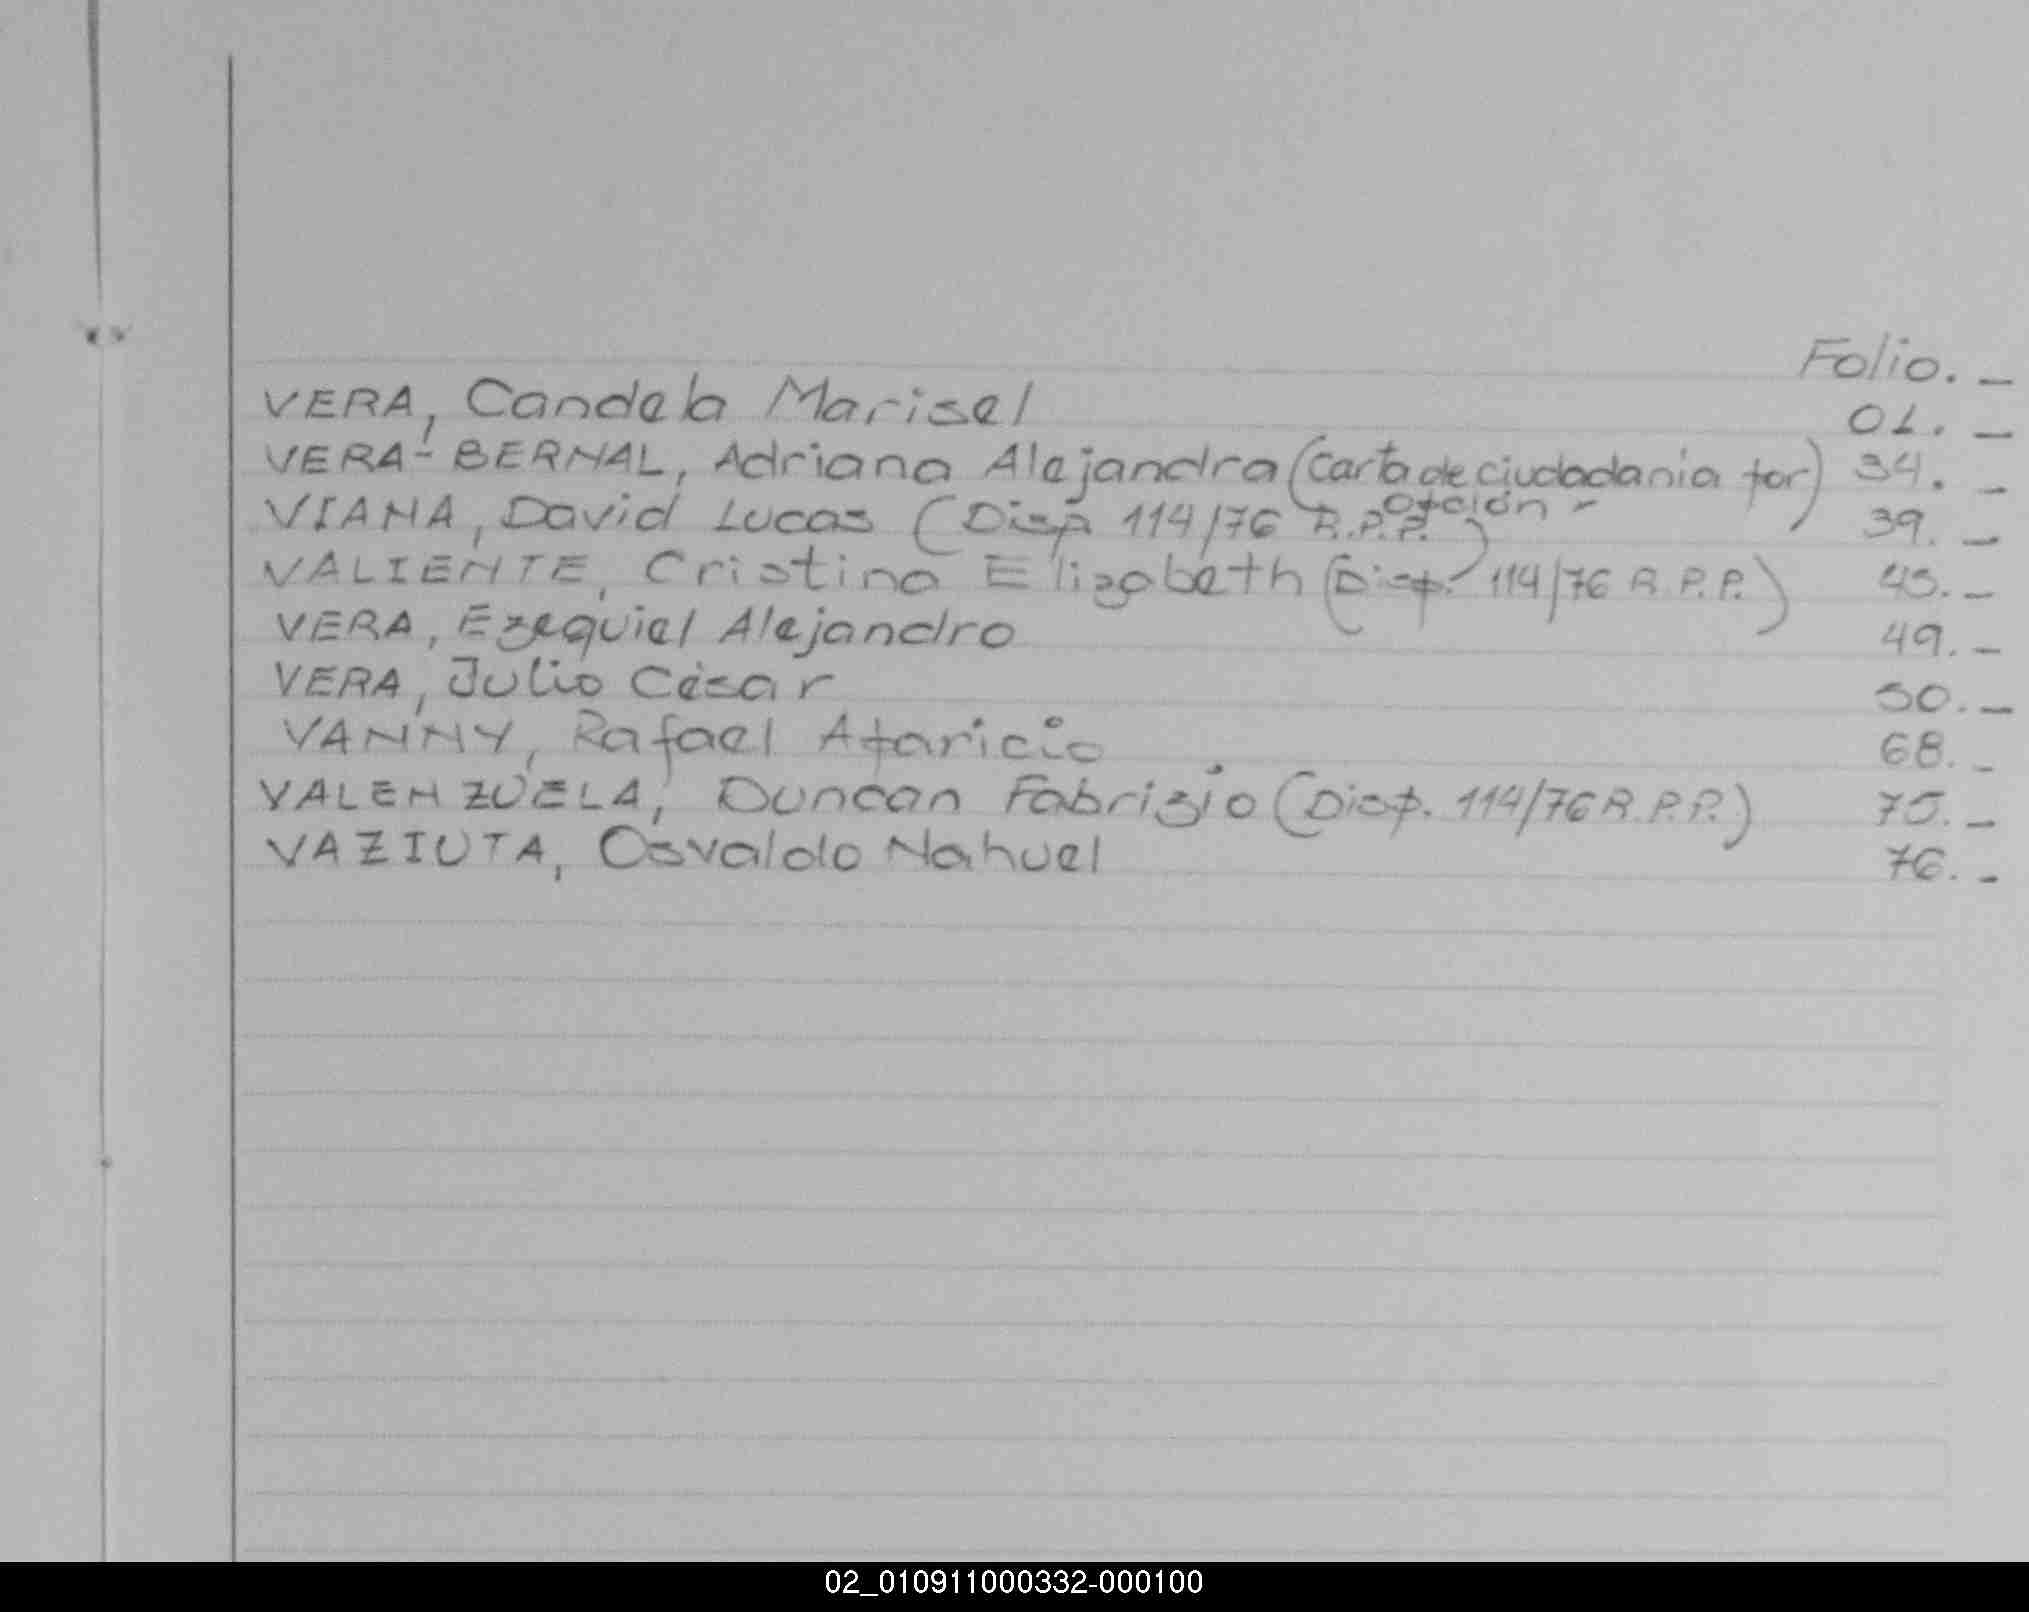 Folio. _
VERA, Candela Marisel 01. _
VERA-BERNAL, Adriana Alejandra (Carta de ciudadania por opción - ) 34. _
VIANA, David Lucas (Disp. 114/76 R.P.P.) 39. _
VALIENTE, Cristina Elizabeth (Disp. 114/76 R.P.P.) 45. _
VERA, Ezequiel Alejandro 49. _
VERA, Julio César 50. _
VANNY, Rafael Aparicio 68. _
VALENZUELA, Duncan Fabrizio (Disp. 114/76 R.P.P.) 75. _
VAZIUTA, Osvaldo Nahuel 76. _
02_010911000332-000100